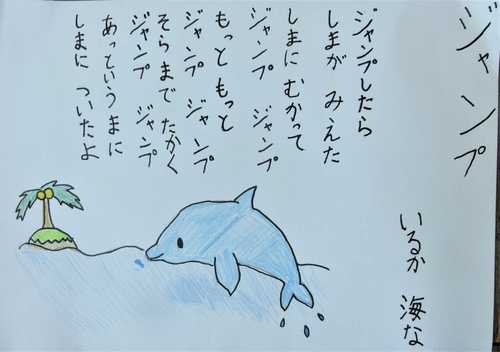 ジャンプ
いるか 海な
ジャンプしたら
しまが みえた
しまに むかって
ジャンプ ジャンプ
もっと もっと
ジャンプ ジャンプ
そらまで たかく
ジャンプ ジャンプ
あっというまに
しまに ついたよ